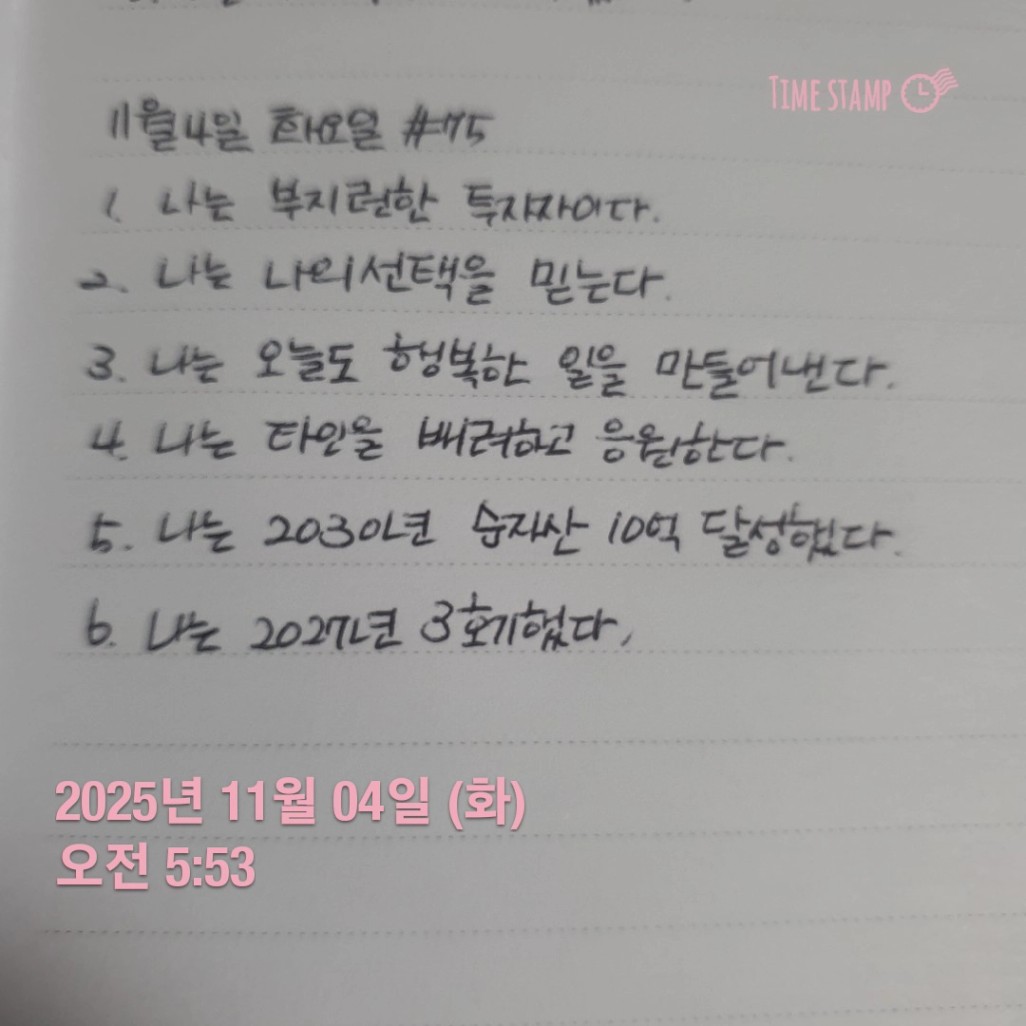 TIME STAMP
11월 4일 화요일 #75
1. 나는 부지런한 투자자이다.
2. 나는 나의 선택을 믿는다.
3. 나는 오늘도 행복한 일을 만들어낸다.
4. 나는 타인을 배려하고 응원한다.
5. 나는 2030년 순자산 10억 달성했다.
6. 나는 2027년 3호기했다.
2025년 11월 04일 (화)
오전 5:53